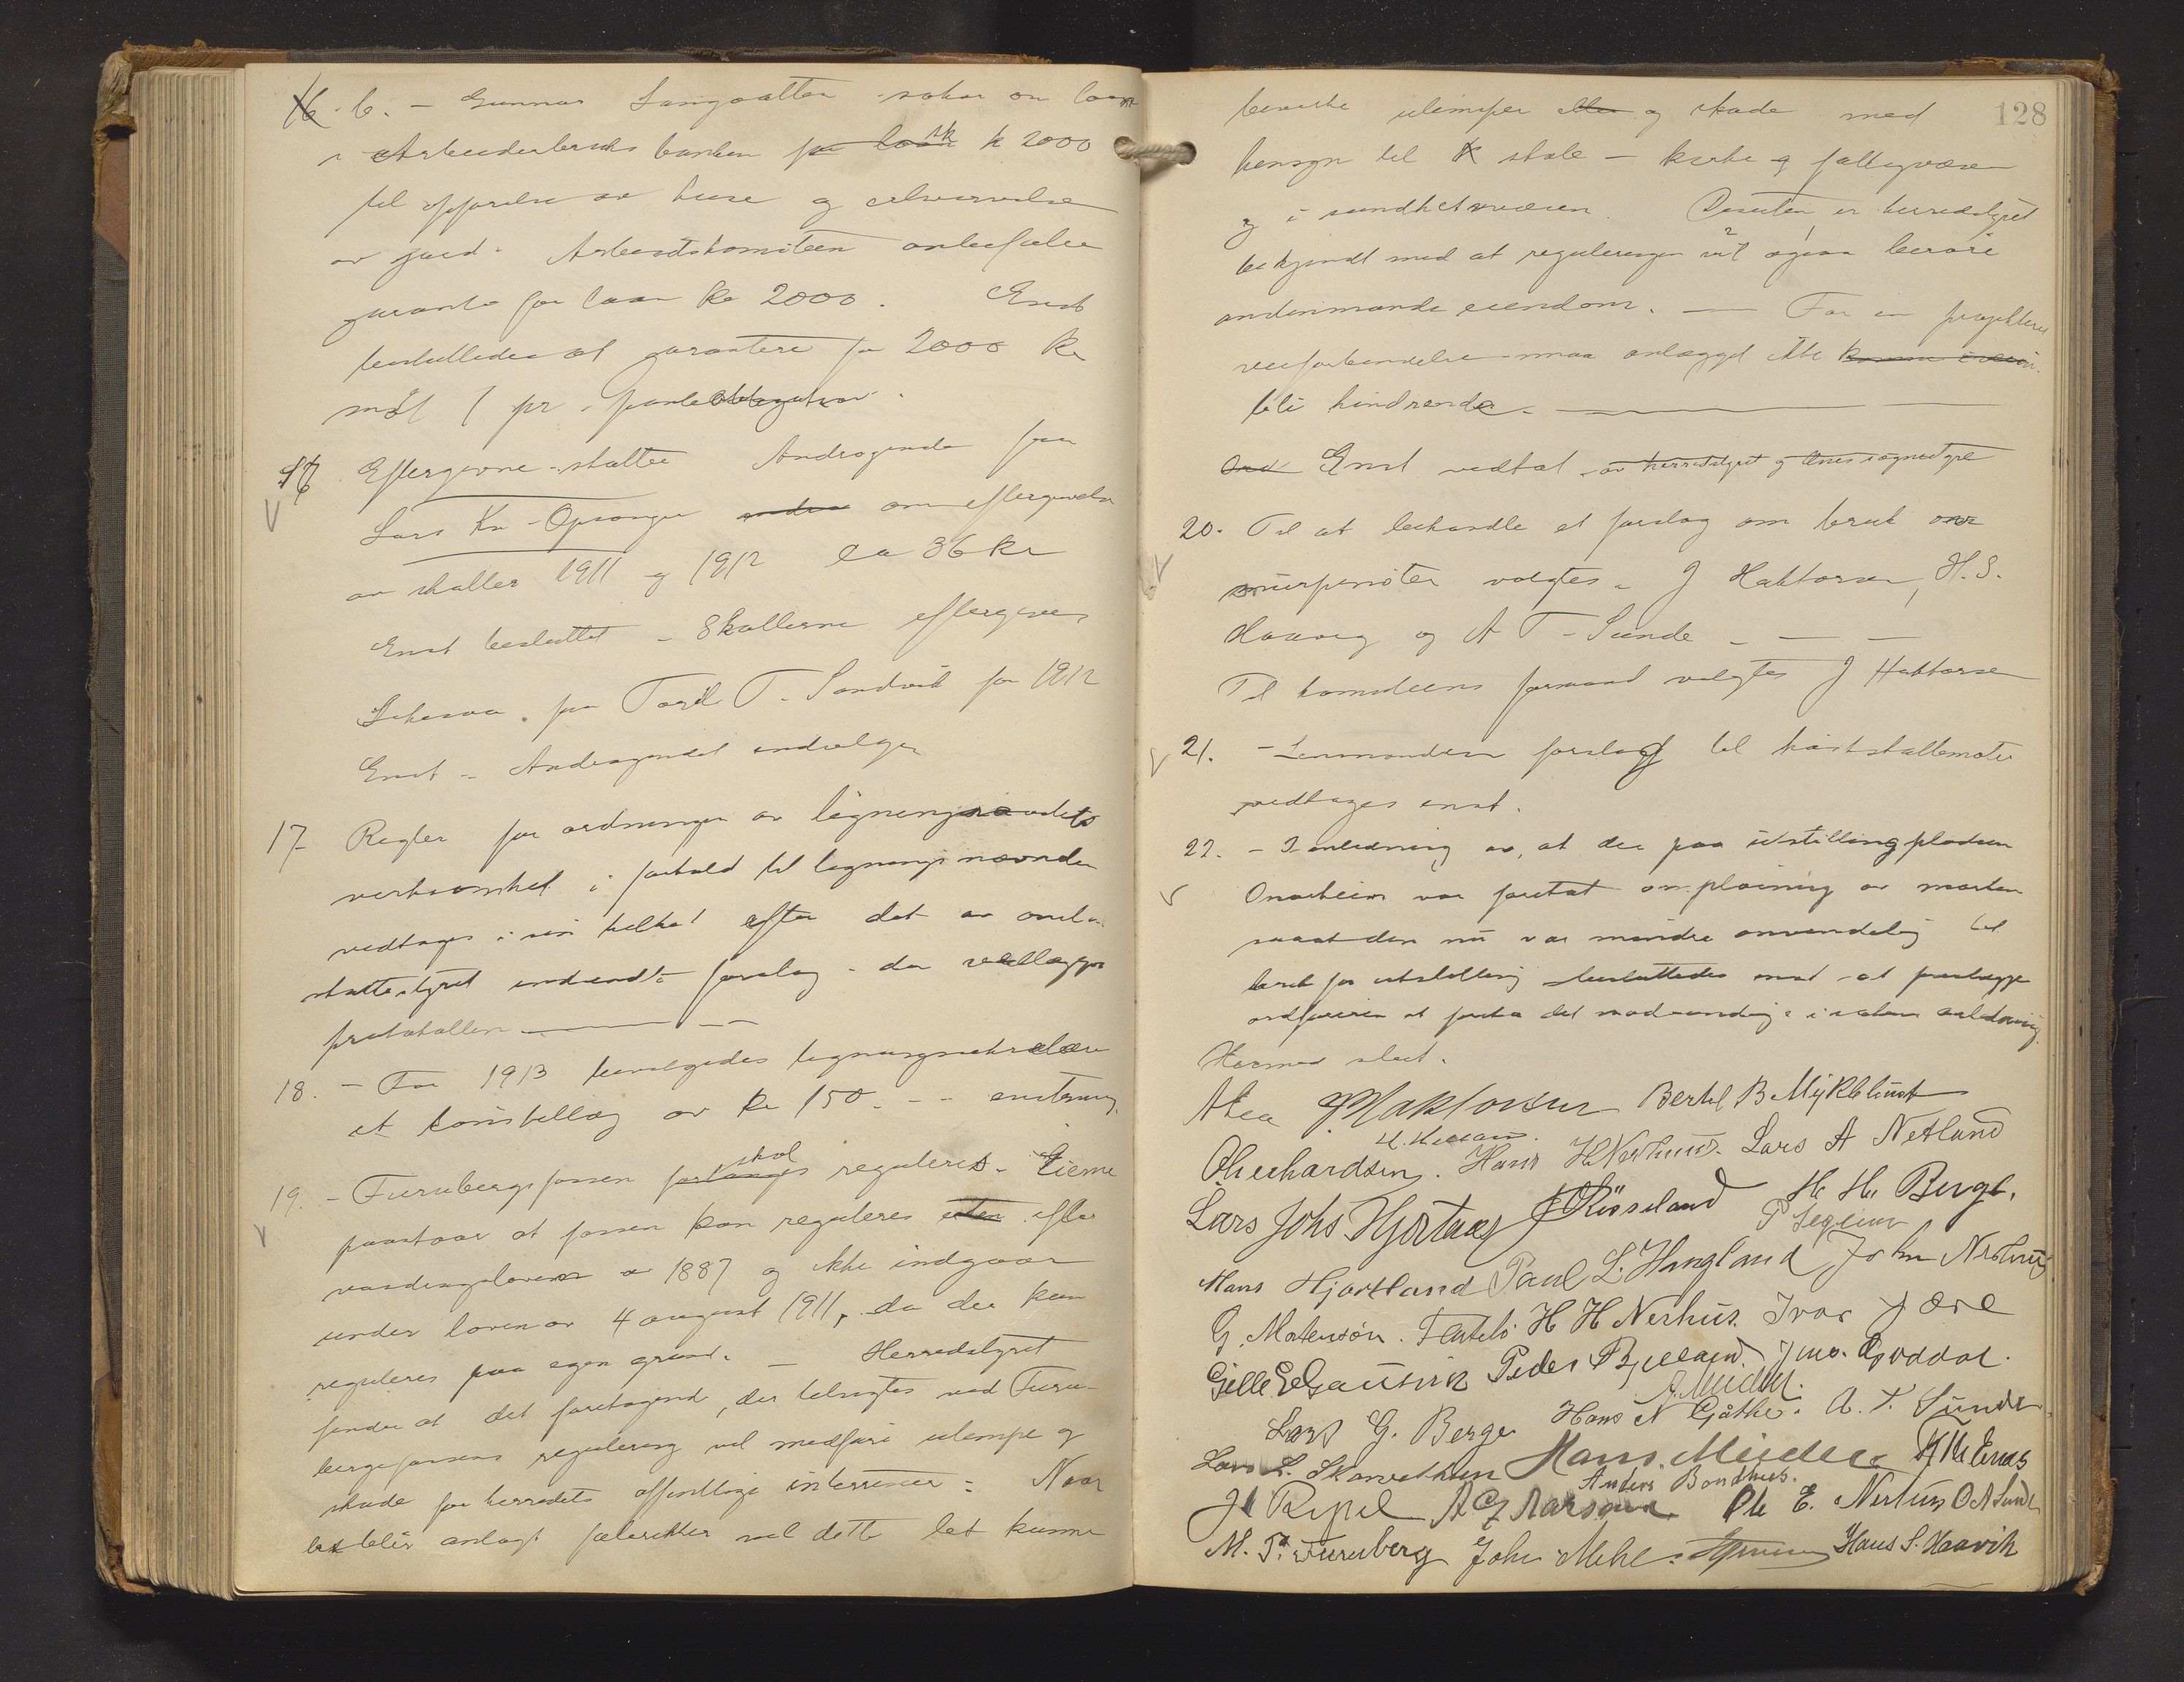 b. - Gunnar søker om laan
i Arbeiderbruks banken kr 2000
til opførelse av huse og erhvervelse
av jord. Arbeidskomiteen anbefaler
garanti for laan kr 2000. Enst
besluttedes at garantere for 2000 kr
mot 1 pr. panteobligation.
16 Eftergivne skatter Andragende fra
Lars Kn. Opsanger om eftergivelse
av skatter 1911 og 1912 ca 36 kr
Enst besluttet - Skatterne eftergives
Likesaa fra Toril T. Sandvik for 1912
Enst - Andragendet indvilges
17 Regler for ordningen av ligningsraadets
verksomhet i forhold til lignings nævnden
vedtages i sin helhet efter det av
skattestyret indsendte forslag - der vedlægges
protokollen
18. - For 1913 bevilgedes ligningssekretæren
et lønstillæg av kr 150. - - enstemmig.
19. - Furubergsfossen skal reguleres. Eierne
paastaar at fossen kan reguleres efter
vasdragsloven av 1887 og ikke indgaar
under loven av 4 august 1911, da den kan
reguleres paa egen grund. - Herredstyret
finder at det foretagend, der tilsigtes ved Furu-
bergsfossens regulering vil medføre ulempe og
skade for herredets offentlige interesser: Naar
blir anlagt fabrikker vil dette let kunne
128
bevirke ulemper og skade med
hensyn til skole - kirke og fattigvæsen
og i sundhetsvæsen. Desuten er herredstyret
bekjendt med at reguleringen vil ogsaa berøre
andenmands eiendom. - For en projekteret
veiforbindelse maa anlægget ikke
bli hindrende.
Enst vedtat av herredstyret og Ænes sognestyre
20. Til at behandle et forslag om bruk av
snurpenøter valgtes. J Haktorsen, H. S.
Haavik og A T. Sunde - - -
Til komiteens formand valgtes J Haktorsen
21. - Lensmandens forslag til høstskattemøter
vedtages enst.
22. - I anledning av, at der paa utstillingspladsen
Onarheim var foretat ompløining av marken
saaat den nu var mindre anvendelig til
bruk for utstilling besluttedes enst at paalægge
ordføreren at foreta det nødvendige i sakens anledning.
Hermed slut.
J Haktorsen Bertel B Myklebust
O Gerhardsen. Hans H Nerhus. Lars A Netland
Lars Johs Hjortaas J Røsseland H. H. Berge.
Hans Hjortland Paul L. Haugland John Nerhus
G. Mortensøn. H H Nerhus. Ivar
Gjelle E Gausvik Peder Bjelland. Jens. Goddal.
Lars G. Berge Hans N Gåthe. A. T. Sunde
Lars L. Skorvethun Hans Midthun
Anders Bondhus.
A G Aarsand Ole E. Nerhus O A Sunde
M. P. Furuberg John Mehl. Hans S. Haavik